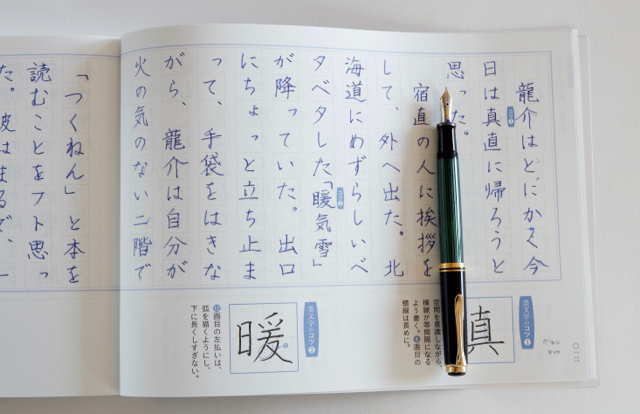 龍介はとにかく今
日は真直に帰ろうと
コツ❶
思った。
宿直の人に挨拶を
して、外へ出た。北
海道にめずらしいベ
タベタした「暖気雪」
コツ❷
が降っていた。出口
にちょっと立ち止ま
って、手袋をはきな
がら、龍介は自分が
火の気のない二階で
「つくねん」と本を
読むことをフト思っ
た。彼はまるで、一
〇一二
美文字のコツ❶
真
空間を意識しながら、
横線が等間隔になる
よう書く。❽画目の
横線は長めに。
美文字のコツ❷
暖
⓬画目の左払いは、
弧を描くようにし、
下に長くしすぎない。